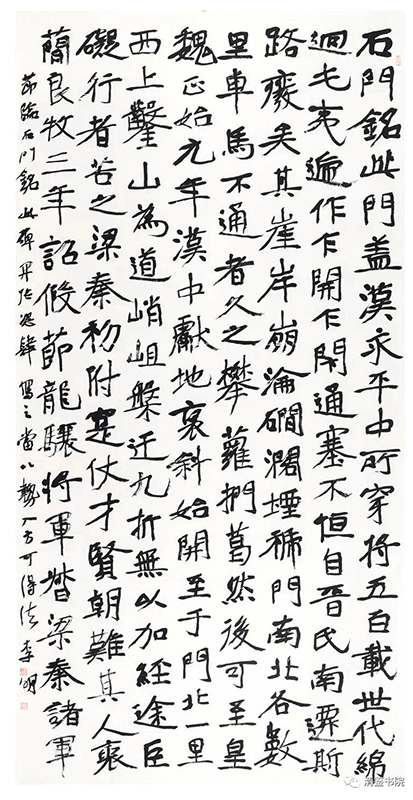 石門銘此門盖漢永平中所穿將五百載世代綿
迴屯夷遞作乍開乍閉通塞不恒自晉氏南遷斯
路廢矣其崖岸崩淪磵閣堙褫門南北各數
里車馬不通者久之攀蘿捫葛然後可至皇
魏正始元年漢中獻地褒斜始開至于門北一里
西上鑿山為道峭岨槃迂九折無以加經途巨
礙行者苦之梁秦初附寔仗才賢朝難其人褒
簡良牧三年詔假節龍驤將軍督梁秦諸軍
節臨石門銘此碑開張恣肆寫之當以勢入方可得法 李明
书院